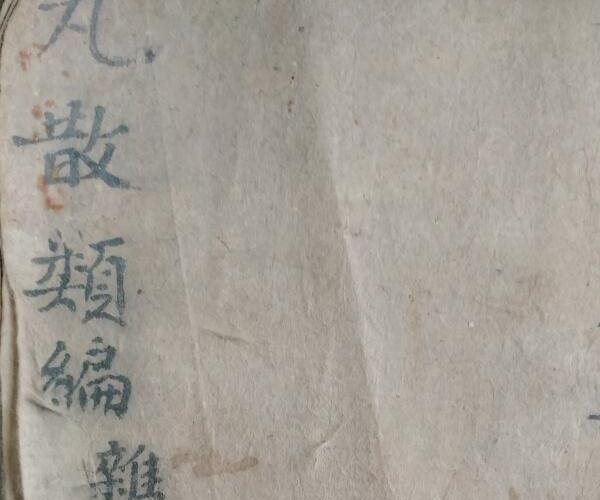 丸散類編雜